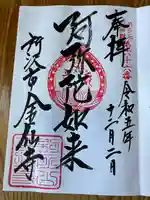 奉拝
令和五年
十二月二日
阿弥陀如来
金仙寺